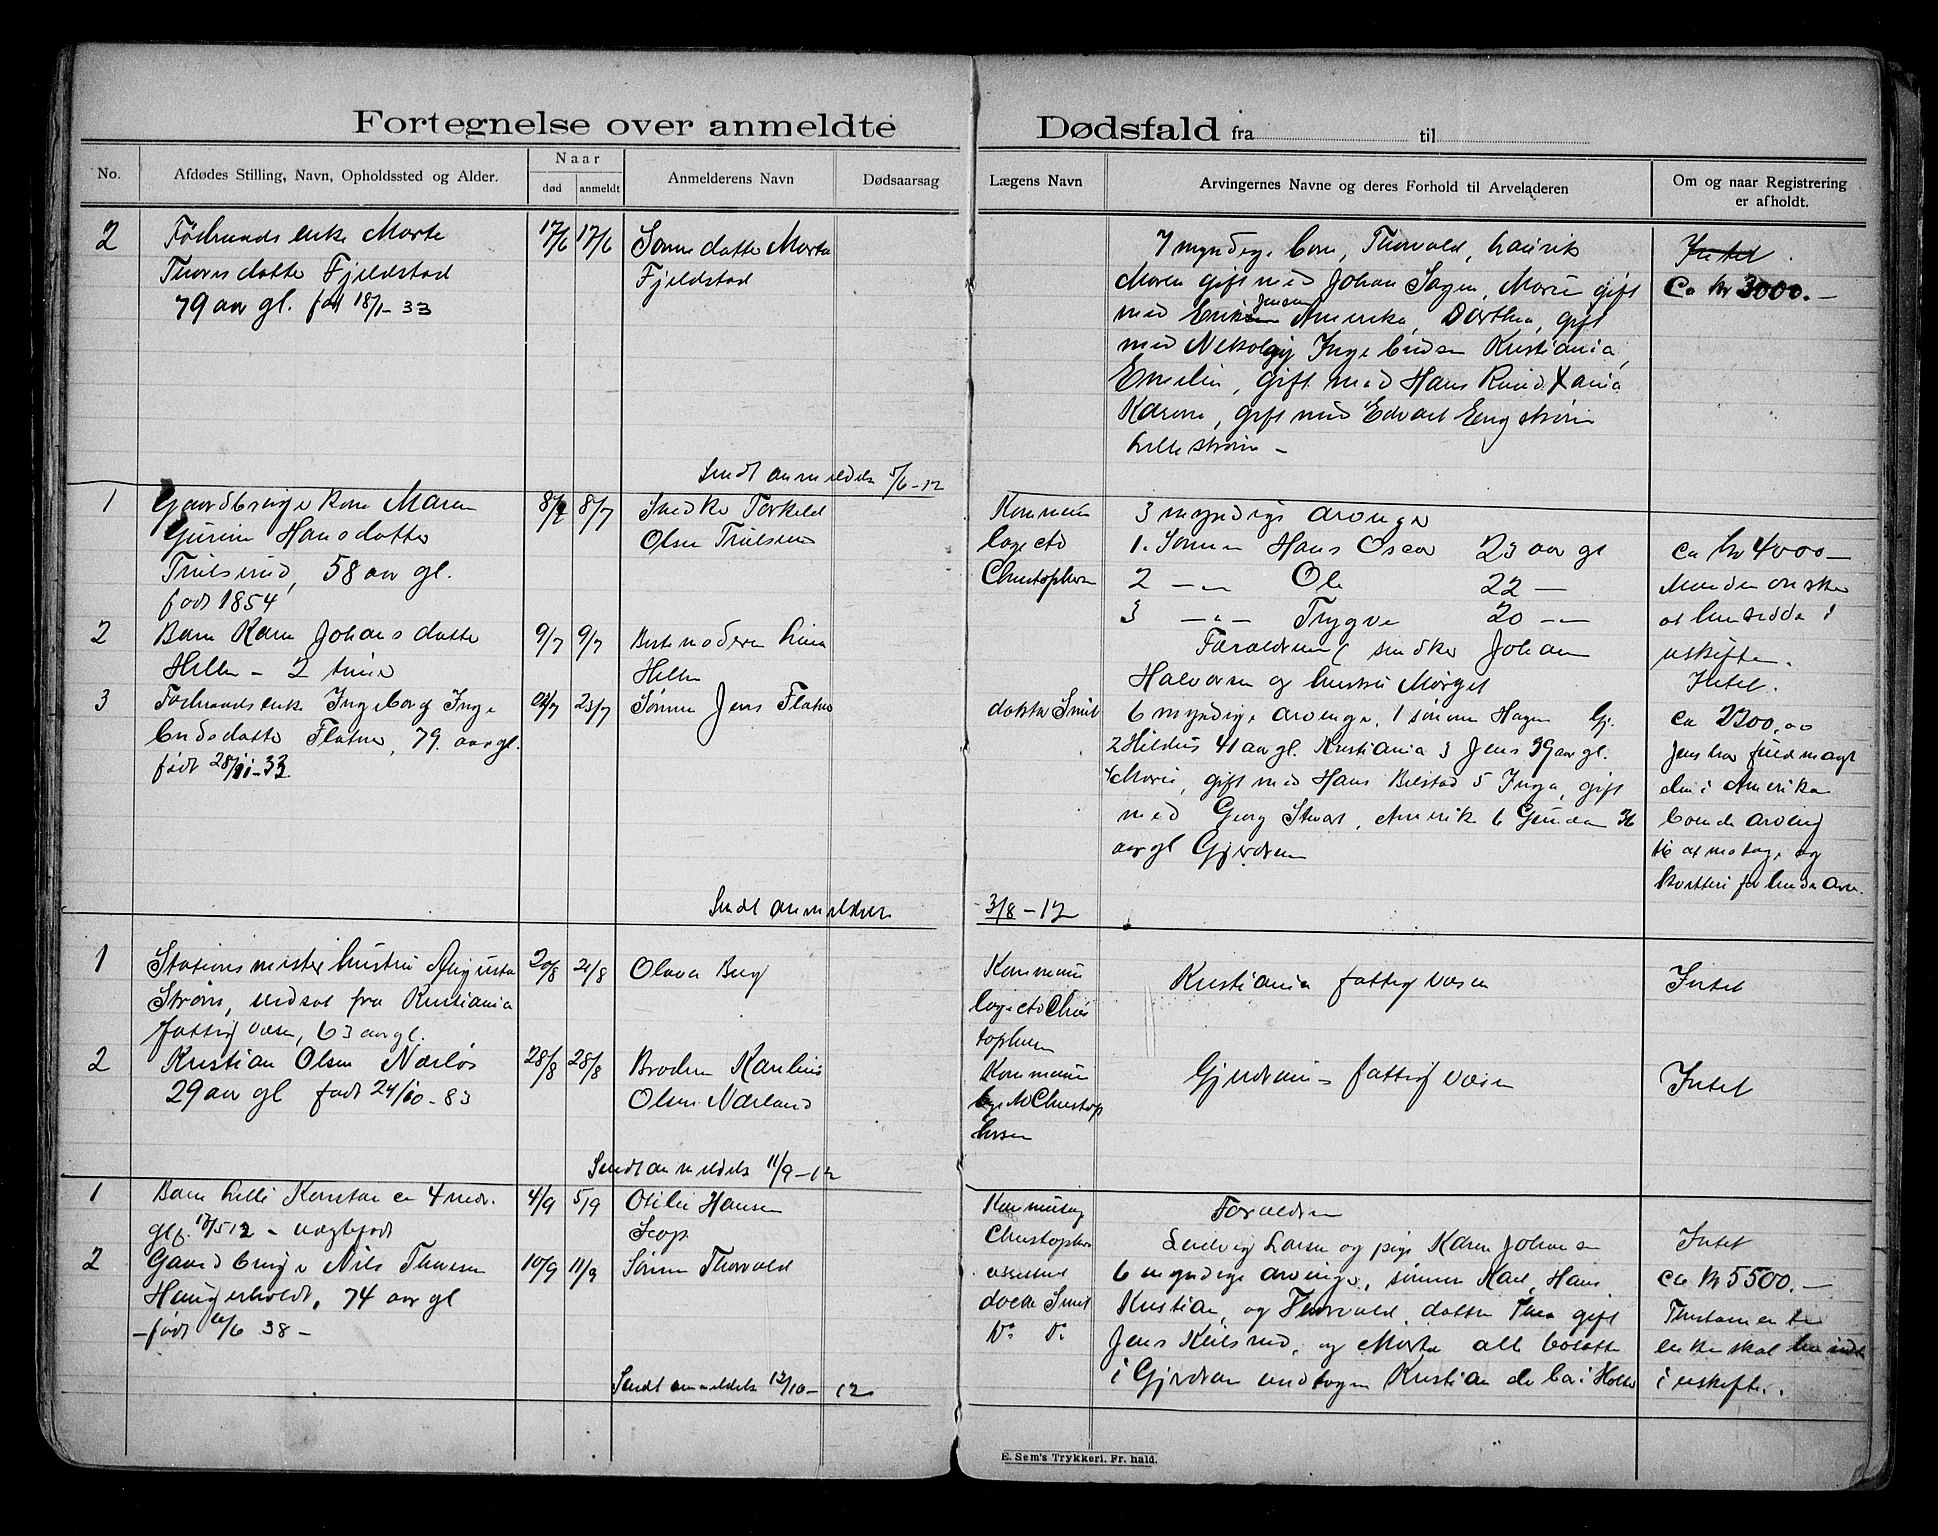 Fortegnelse over anmeldte Dødsfald fra til
No.
Afdødes Stilling, Navn, Opholdssted og Alder.
Naar
død anmeldt
Anmelderens Navn
Dødsaarsag
Lægens Navn
Arvingernes Navne og deres Forhold til Arveladeren
Om og naar Registrering
er afholdt.
2 Føderaadsenke Marte 17/6 17/6 Sønnedatter Marta
Thorsdatter Fjeldstad Fjeldstad
79 aar gl. født 18/1-33
7 myndige børn, Thorvald, Laurits
Maren gift med Johan Sagen, Marie gift
med Erik Jensen Amerika, Dorthea, gift
med Nikolay Ingebridsen Kristiania,
Emelie, gift med Hans Rund Xania
Karen, gift med Edvart Engstrøm
Lillestrøm -
Intet.
Ca kr 3000.-
Sendt anmeldelse 5/6-12
1 Gaardbrugerkone Maren 8/7 8/7 Snedker Torkeld
Gurine Hansdatter Olsen Trulserud
Trulserud, 58 aar gl.
født 1854
Kommune
lægectd
Christophersen
3 myndige arvinger
1. Sønnen Hans Oscar 23 aar gl
2 -"- Ole 22 -
3 -"- Trygve 20 -"-
ca kr 4000-
Manden ønsker
at hensidde i
uskifte.
2 Barn Karen Johansdatter 9/7 9/7 Bestemoderen Lina
Hellen - 2 timer Hellen
Forældrene snedker Johan
Halvorsen og hustru Marget
Intet.
3 Føderaadsenke Ingeborg Inge 22/7 23/7 Sønnen Jens Flatner
bridsdatter Flatner, 79 aar gl.
født 28/11-33
doktor Smit
6 myndige arvinger, 1 sønnen Hagen Gj.
2 Hildus 41 aar gl. Kristiania 3 Jens 39 aar gl.
4 Marie, gift med Hans Bilstad 5 Inga, gift
med Georg Stuart, Amerika 6 Gunda 36
aar gl Gjerdrum
ca 2200,00
Jens har fuldmagt
den i Amerika
boende arving
til at motage og
kvittere for hendes arv.
Sendt anmeldelse 3/8-12
1 Stationsmesterhustru Augusta 20/8 21/8 Olava Berg
Strøm, undsat fra Kristiania
fattigvæsen, 63 aar gl.
Kommune
lægectd Chris
tophersen
Kristiania fattigvæsen
Intet
2 Kristian Olsen Nærløs 28/8 28/8 Broderen Karelius
29 aar gl født 24/10-83 Olsen Nærland
Kommune
læge Christop
hersen
Gjerdrums fattigvæsen
Intet
Sendt anmeldelse 11/9-12
1 Barn Lilli Konstance 4 mdr. 4/9 5/9 Otilie Hansen
gl f. 17/5 12 - uægtefødt Scop
Kommunelæg
Christophersen
Forældrene
Ludvig Larsen og pige Karen Johansen
Intet
2 Gaardbruger Nils Thoresen 10/9 11/9 Sønnen Thorvald
Haugerholdt, 74 aar gl
- født 6/6 38 -
assistend
docter Smit
Do Do
6 myndige arvinger, sønner Karl, Hans
Kristian, og Thorvald, datter Thea gift
Jens Kulsrud, og Marta alle bosatte
i Gjerdrum undtagen Kristian de bor i Holter
ca kr 5500.-
Thestamente
enke skal hensidde
i uskifte.
Sendt anmeldelse 12/10-12
E. Sem's Trykkeri. Fr. hald.